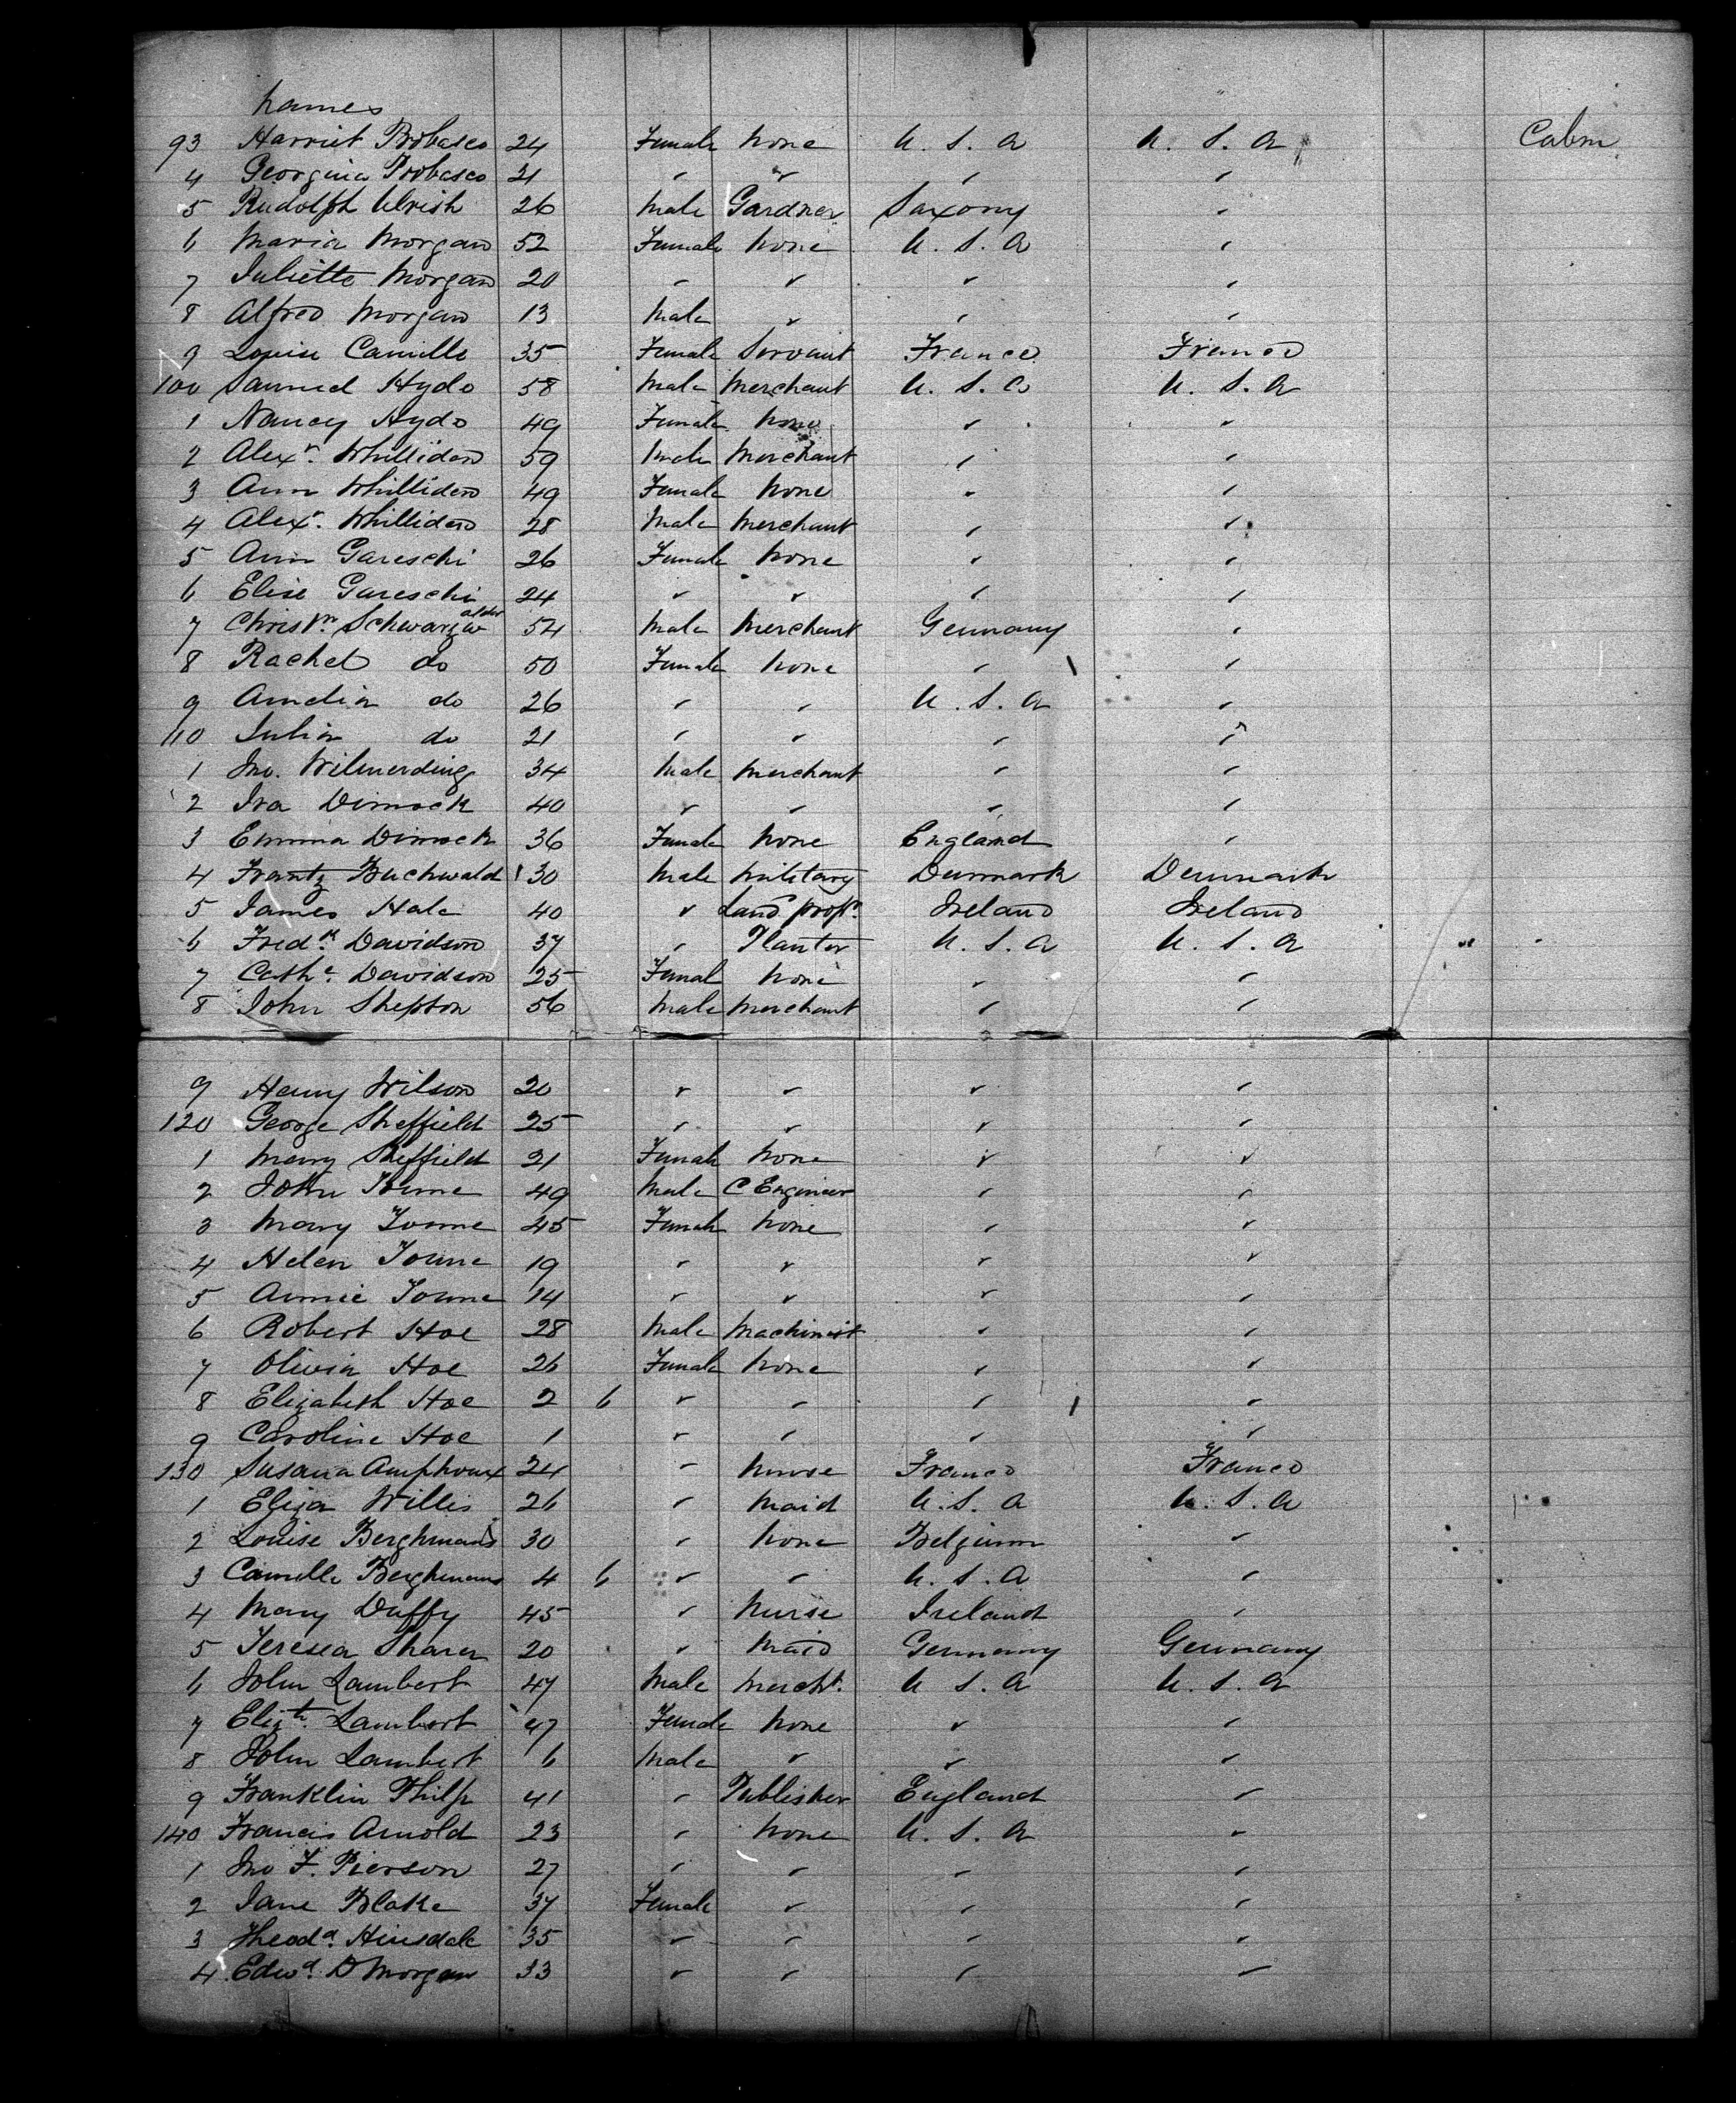 names
93 Harriet Probasco 24 Female none U. S. A U. S. A Cabin
4 Georgina Probasco 21 " " " "
5 Rudolph Ulrish 26 Male Gardner Saxony "
6 Maria Morgan 52 Female none U. S. A "
7 Juliette Morgan 20 " " " "
8 Alfred Morgan 13 Male " " "
9 Louise Camille 35 Female Servant France France
100 Samuel Hyde 58 Male Merchant U. S. A U. S. A
1 Nancy Hyde 49 Female none " "
2 Alexr. Whilliden 59 Male Merchant " "
3 Ann Whilliden 49 Female none " "
4 Alexr. Whilliden 28 Male Merchant " "
5 Ann Gareschi 26 Female none " "
6 Elise Gareschi 24 " " " "
7 Christn. Schwarzwalder 54 Male Merchant Germany "
8 Rachel do 50 Female none " "
9 Amelia do 26 " " U. S. A "
110 Julia do 21 " " " "
1 Jno. Wilmerding 34 Male Merchant " "
2 Ira Dimock 40 " " " "
3 Emma Dimock 36 Female none England "
4 Frantz Buchwald 30 Male Military Denmark Denmark
5 James Hale 40 " Land propr. Ireland Ireland
6 Fredk. Davidson 37 " Planter U. S. A U. S. A
7 Cathe. Davidson 25 Femal none " "
8 John Shepton 56 Male Merchant " "
9 Henry Wilson 20 " " " "
120 George Sheffield 25 " " " "
1 Mary Sheffield 21 Female none " "
2 John Towne 49 Male C Engineer " "
3 Mary Towne 45 Female none " "
4 Helen Towne 19 " " " "
5 Annie Towne 14 " " " "
6 Robert Hoe 28 Male Machinist " "
7 Olivia Hoe 26 Female none " "
8 Elizabeth Hoe 2 6 " " " "
9 Caroline Hoe 1 " " " "
130 Susana Amphoux 24 " nurse France France
1 Eliza Willis 26 " Maid U. S. A U. S. A
2 Louise Berghmans 30 " none Belgium "
3 Camille Berghmans 4 6 " " U. S. A "
4 Mary Duffy 45 " Nurse Ireland "
5 Teresa Sharer 20 " Maid Germany Germany
6 John Lambert 47 Male Mercht. U S. A U. S. A
7 Elizth. Lambert 47 Female none " "
8 John Lambert 6 Male " " "
9 Franklin Philp 41 " Publisher England "
140 Francis Arnold 23 " none U. S. A "
1 Jno F. Pierson 27 " " " "
2 Jane Blake 37 Female " " "
3 Theoda. Hinsdale 35 " " " "
4 Edwd. D Morgan 33 " " " "